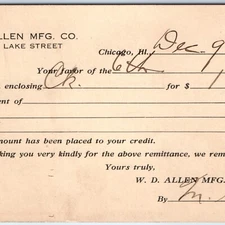 ALLEN MFG. CO.
LAKE STREET
Chicago, Ill., Dec. 9
Your favor of the 6th
enclosing Ck. for $ 1
ent of
mount has been placed to your credit.
king you very kindly for the above remittance, we rem
Yours truly,
W. D. ALLEN MFG.
By M.